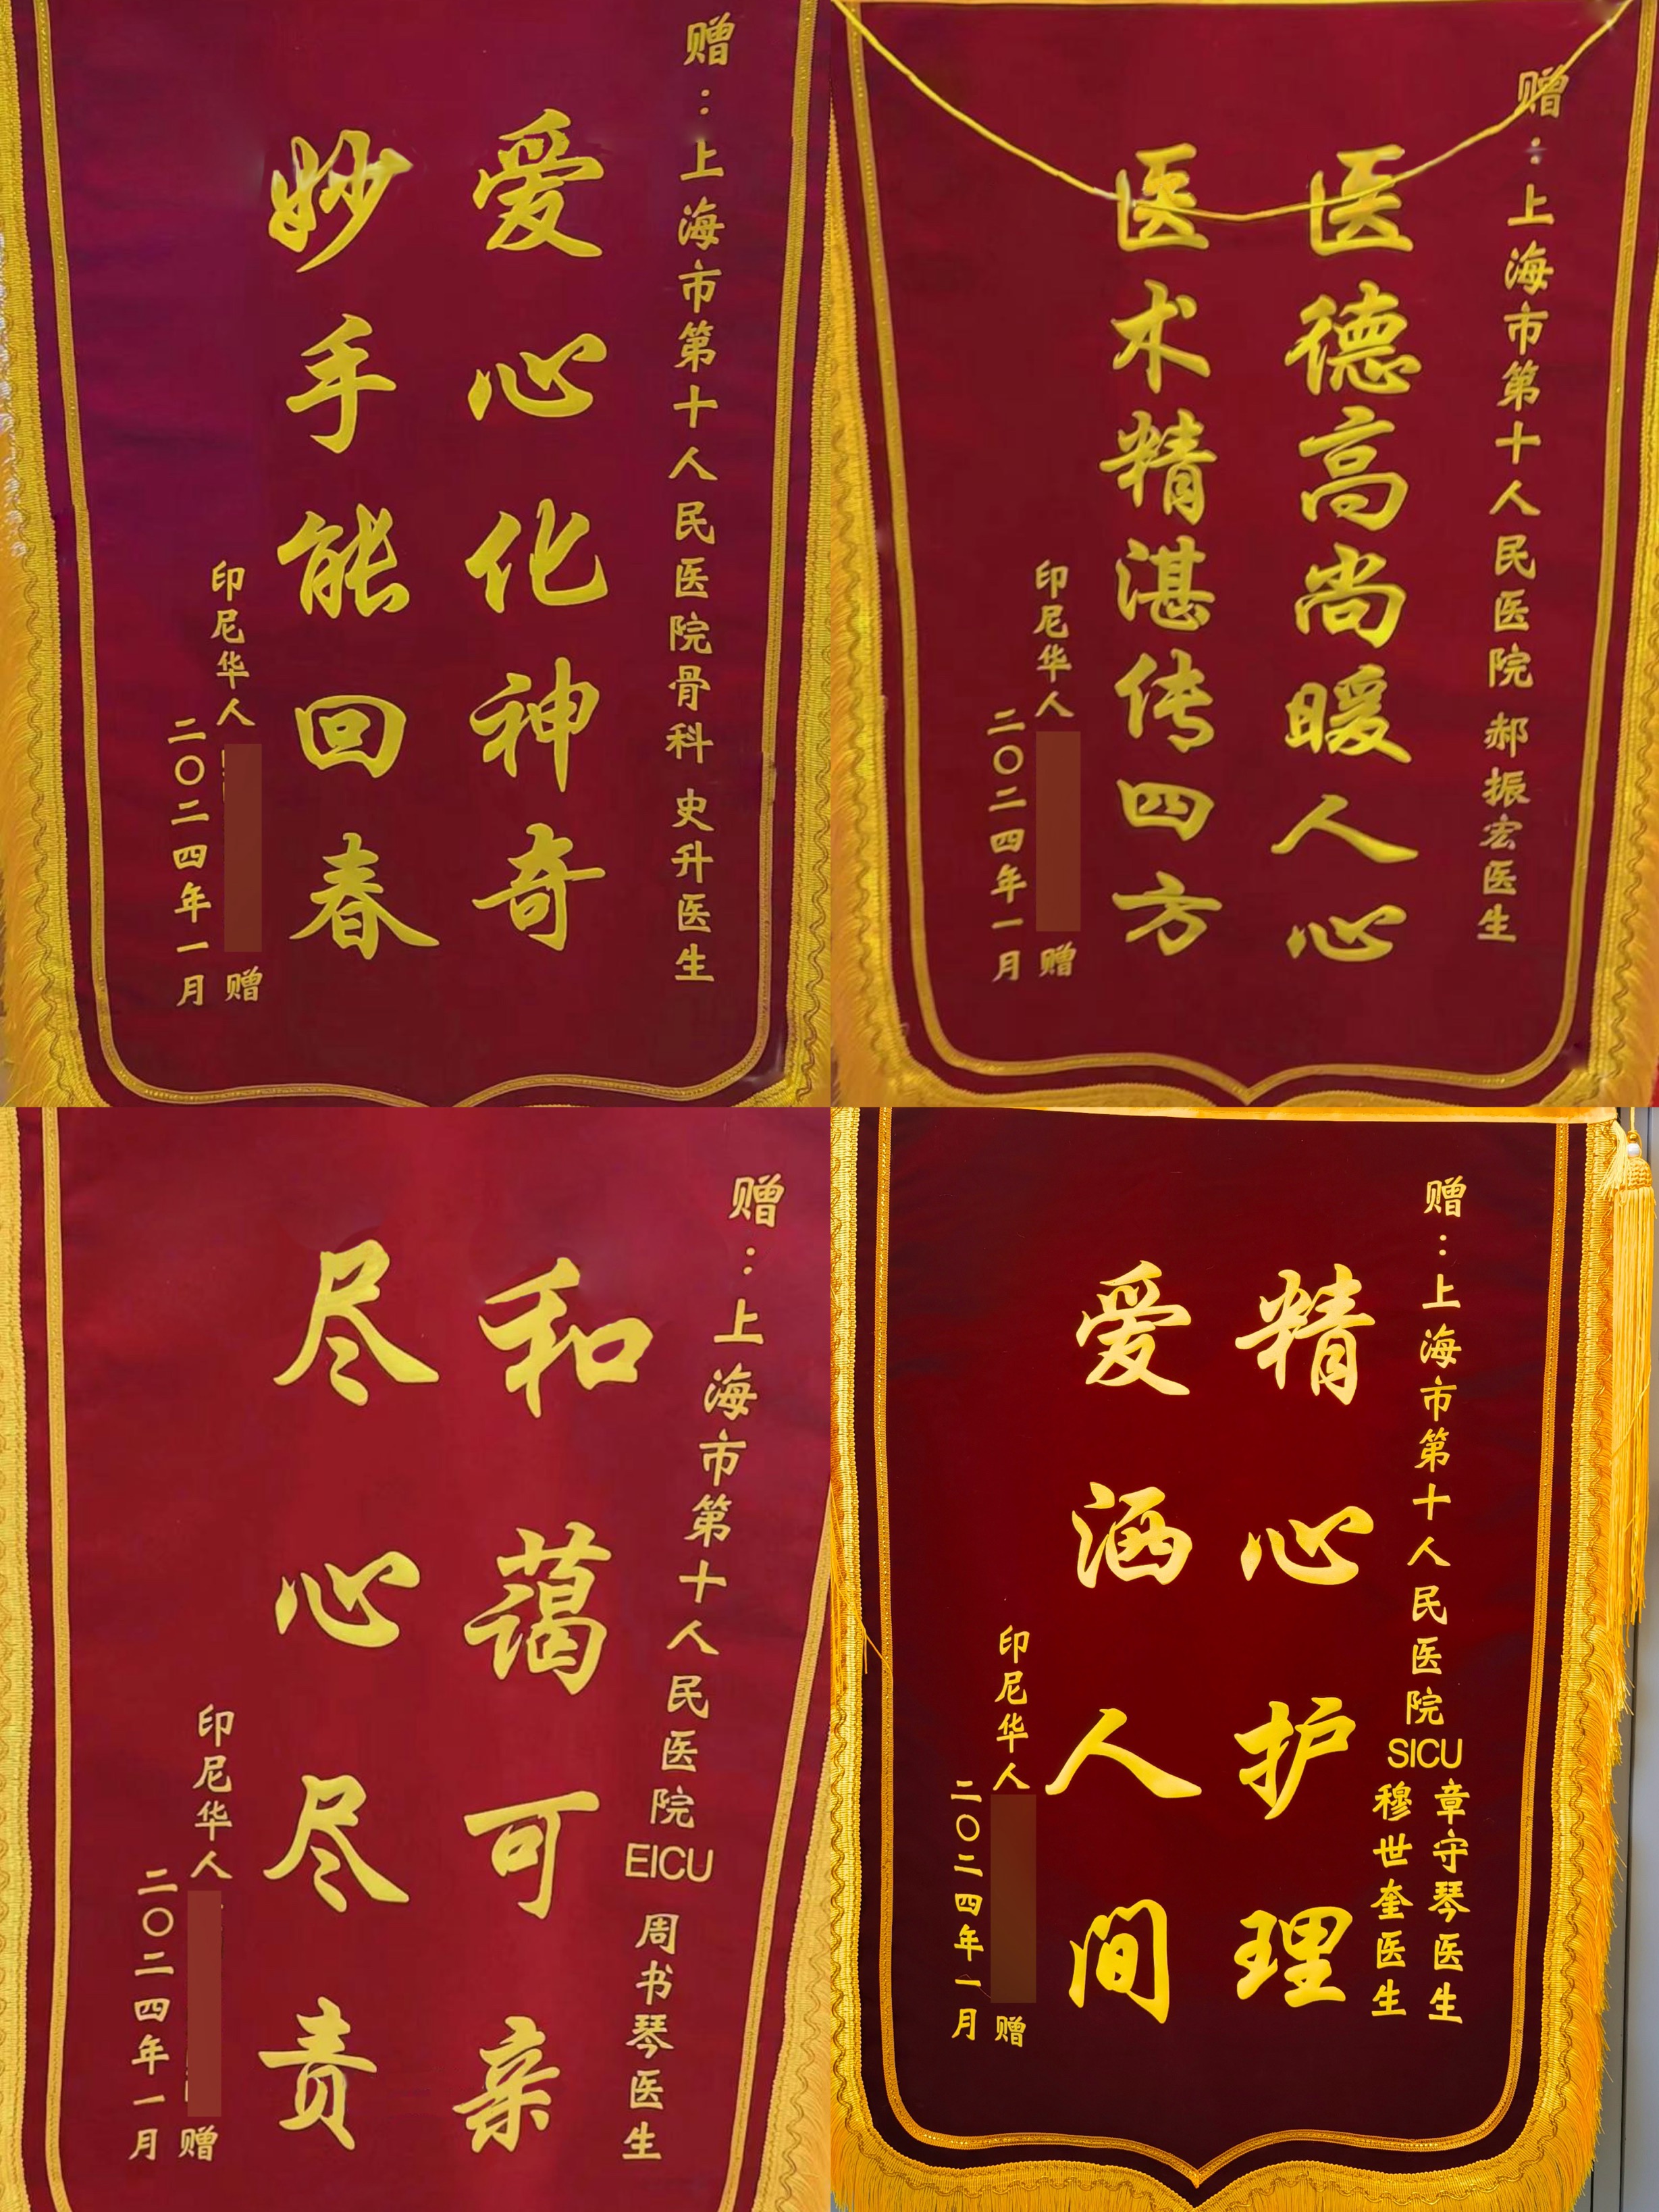 赠：上海市第十人民医院骨科 史升医生
爱心化神奇
妙手能回春
印尼华人
赠
二〇二四年一月
赠：上海市第十人民医院 郝振宏医生
医德高尚暖人心
医术精湛传四方
印尼华人
赠
二〇二四年一月
赠：上海市第十人民医院 EICU 周书琴医生
和蔼可亲
尽心尽责
印尼华人
赠
二〇二四年一月
赠：上海市第十人民医院 SICU
章守琴医生
穆世奎医生
精心护理
爱洒人间
印尼华人
赠
二〇二四年一月